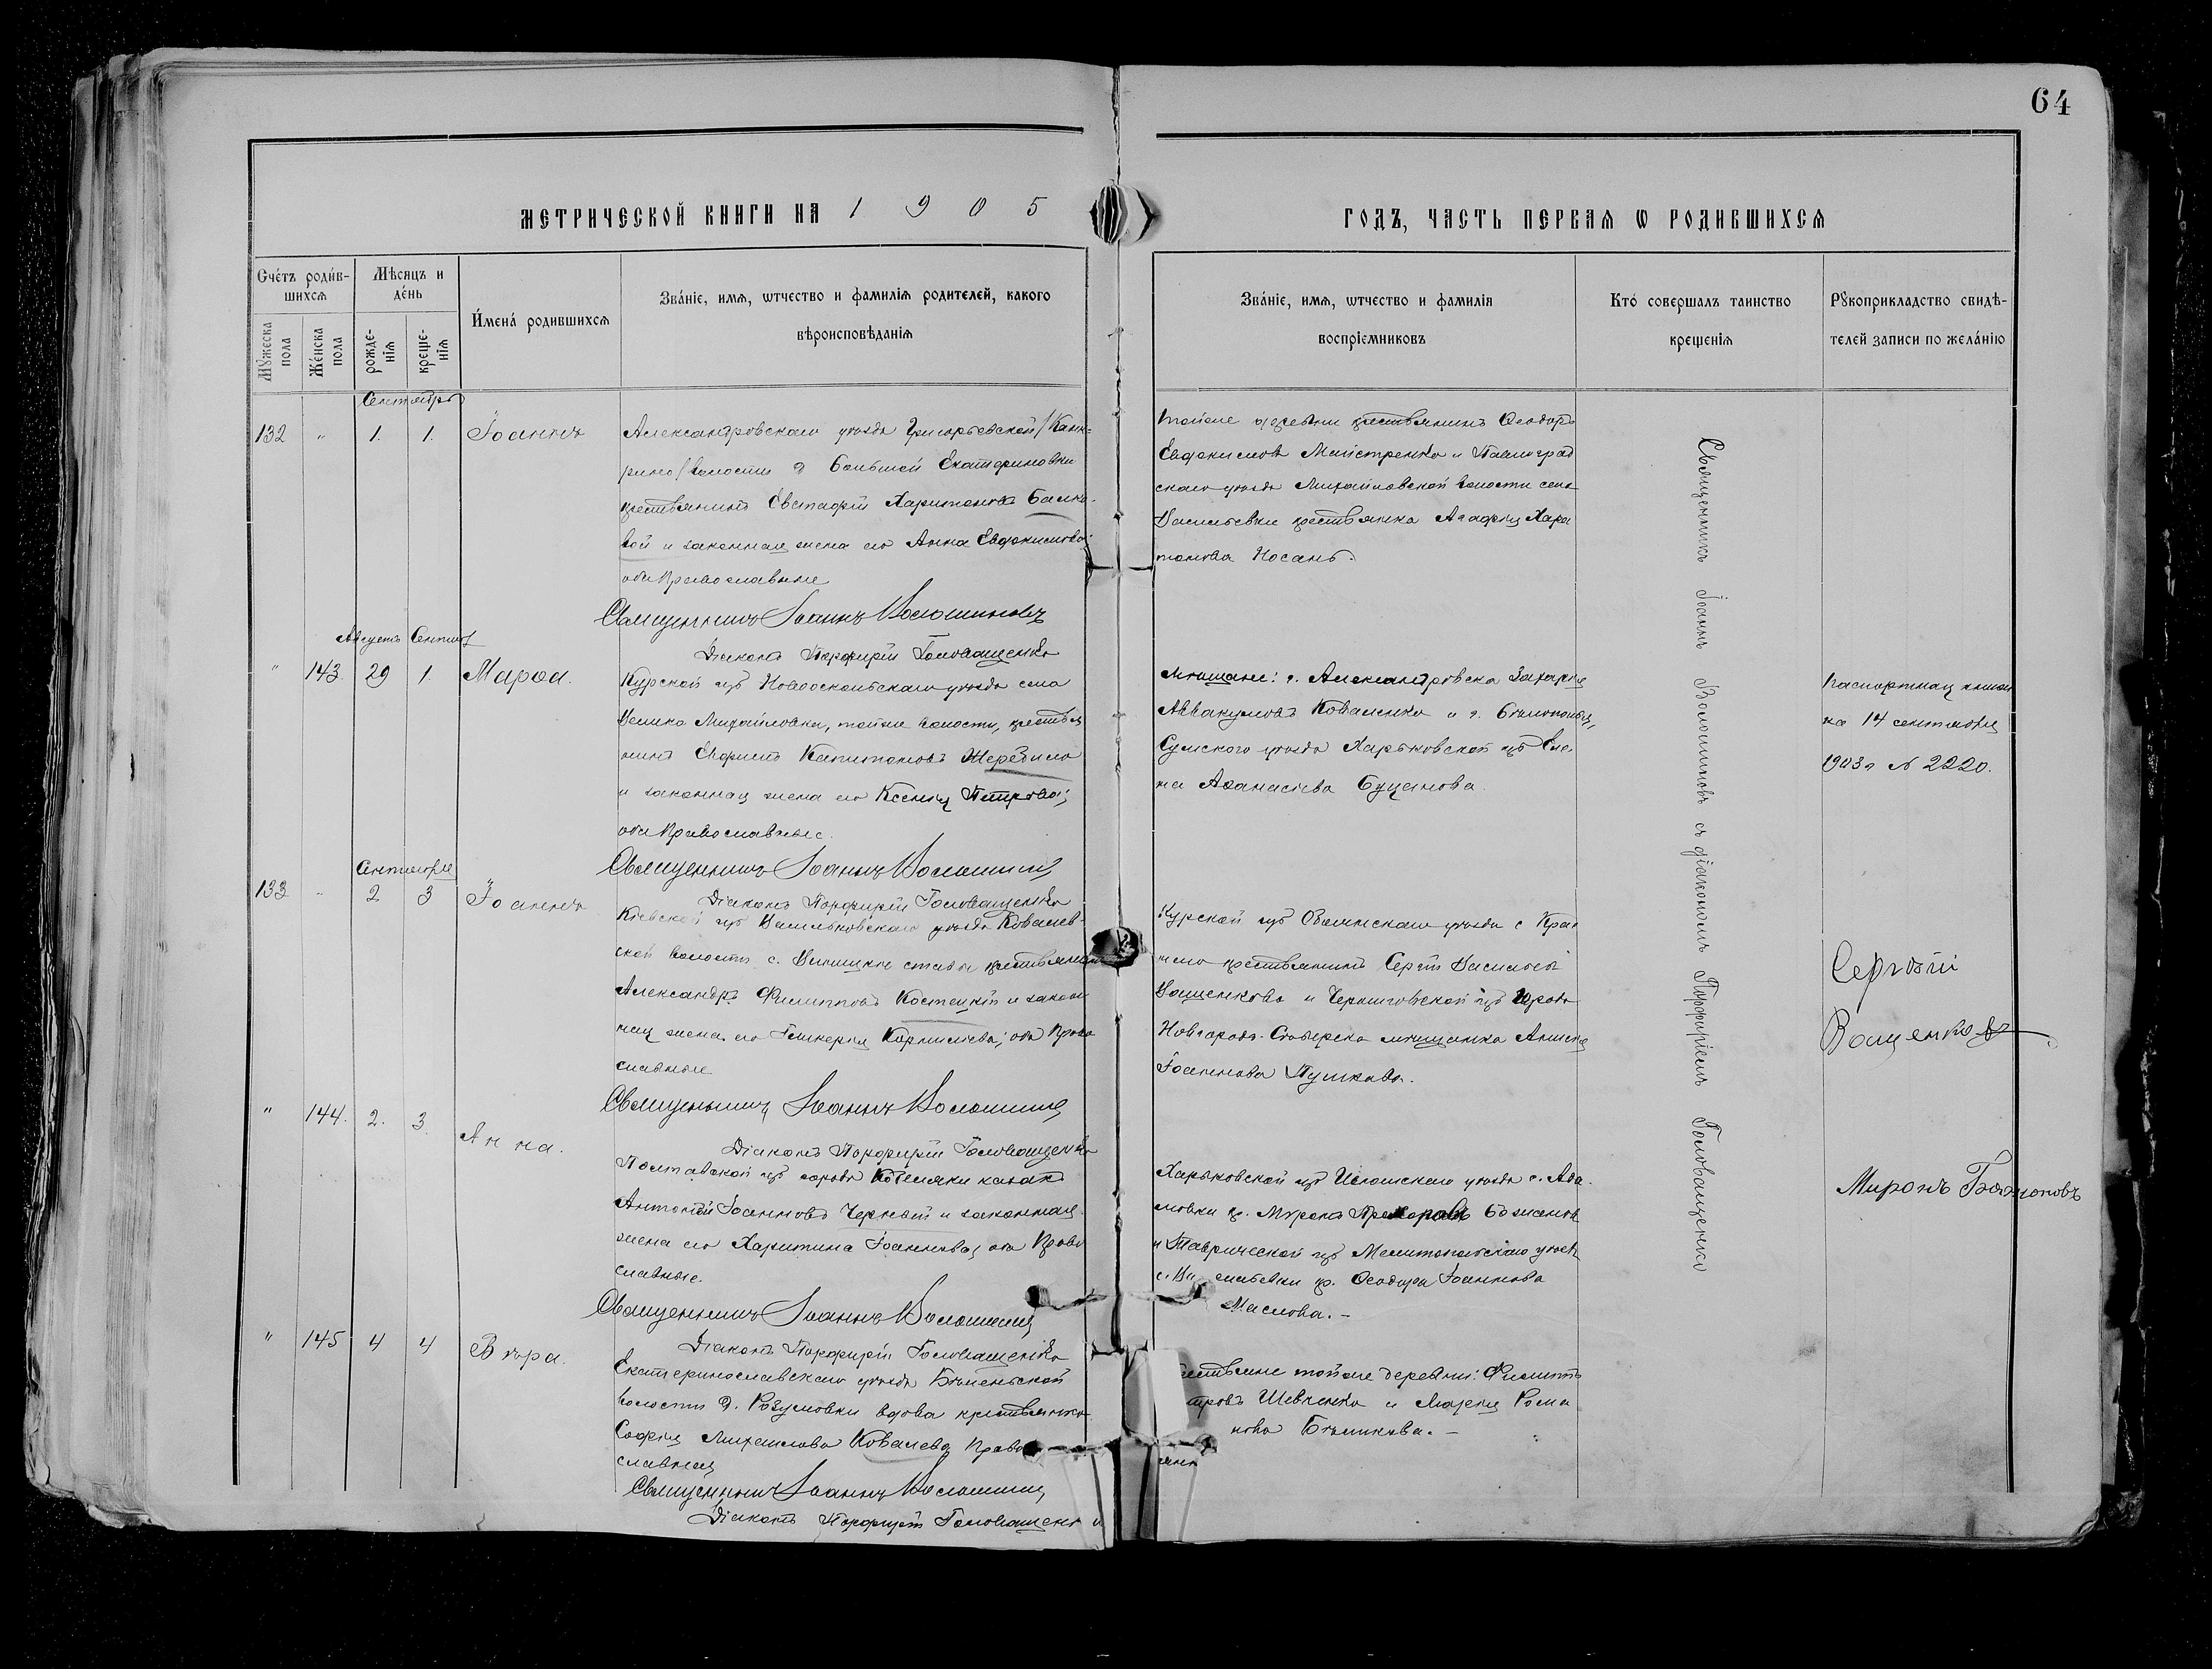 64
МЕТРИЧЕСКОЙ КНИГИ НА 1905
ГОДЪ, ЧАСТЬ ПЕРВАѦ Ѡ РОДИВШИХСѦ
Счетъ родившихсѧ
Мꙋжеска пола
Женска пола
Мѣсяцъ и день
рожденія
крещенія
Имена родившихсѧ
Званіе, имѧ, ѡтчество и фамиліѧ родителей, какого
вѣроисповѣданіѧ
Званіе, имѧ, ѡтчество и фамиліѧ
воспріемниковъ
Кто совершалъ таинство
крещеніѧ
Рꙋкоприкладство свидѣ-
телей записи по желанію
Сентябрь
132 " 1. 1. Іоаннъ
Александровскаго уѣзда Григорьевской /Канк-
рино/ волости д Большой Екатериновки
крестьянинъ Евстафій Харитоновъ Балко-
вой и законная жена его Анна Евдокимова;
оба православные
Священникъ Іоаннъ Волошиновъ
Діаконъ Порфирій Головащенко
тойже деревни крестьянинъ Ѳеодоръ
Евдокимовъ Майстренко и Павлоград
скаго уѣзда Михайловской волости села
Васильевки крестьянка Агафія Хари
тонова Носань.
Августъ Сентяб
" 143. 29 1 Марѳа.
Курской губ Новооскольскаго уѣзда села
Велико Михайловки, тойже волости, крестья
нинъ Ефимъ Капитоновъ Жередило
и законная жена его Ксенія Петрова;
оба православные.
Священникъ Іоаннъ Волошинов
Діаконъ Порфирій Головащенко
мѣщане: г. Александровска Захарія
Аввакумовъ Коваленко и г. Бѣлополья,
Сумского уѣзда Харьковской губ Еле-
на Аѳанасіева Буцанова.
Паспортная книж
на 14 сентября
1903 г № 2220.
Сентября
133 " 2 3 Іоаннъ
Кіевской губ Васильковскаго уѣзда Ковалев-
ской волости с. ставы крестьянинъ
Александръ Филипповъ Костецкій и закон
ная жена его Гликерія Корнилиева; оба право
славные
Священникъ Іоаннъ Волошинов
Діаконъ Порфирій Головащенко
Курской губ уѣзда с
крестьянинъ Сергій Васильев
Ващенковъ и Черниговской губ города
Новгородъ-Сѣверска мѣщанка Анисія
Іоаннова Пушкова.
Сергѣй
Ващенковъ
" 144. 2. 3. Анна.
Полтавской губ города Кобеляки казакъ
Антоній Іоанновъ Черный и законная
жена его Харитина Іоаннова, оба право
славные.
Священникъ Іоаннъ Волошинов
Діаконъ Порфирій Головащенко
Харьковской губ Изюмскаго уѣзда с.
кр. Миронъ Прохоровъ Божанов
и Таврической губ Мелитопольскаго уѣзда
с. Ва сильевки кр. Ѳеодора Іоаннова
Маслова. –
Миронъ Божановъ
" 145 4 4 Вѣра.
Екатеринославскаго уѣзда Бѣленьской
волости д. Розумовки вдова крестьянка
Софія Михайлова Ковалева, право
славная
Священникъ Іоаннъ Волошинов
Діаконъ Порфирій Головащенк
крестьяне тойже деревни: Филиппъ
тровъ Шевченко и Марія Рома
нова Бѣликова. –
Священникъ Іоаннъ Волошиновъ съ діакономъ Порфиріемъ Головащенко